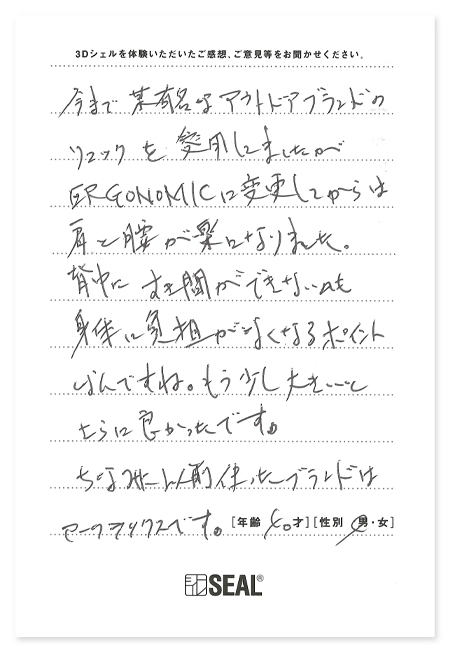 3Dシェルを体験いただいたご感想、ご意見等をお聞かせください。
今まで某有名なアウトドアブランドの
リュックを愛用してましたが
ERGONOMICに変更してからは
肩と腰が楽になりました。
背中にすき間ができないのも
身体に負担がなくなるポイント
なんですね。もう少し大きいと
さらに良かったです。
ちなみに以前使ったブランドは
[年齢 才][性別 男・女]
SEAL®